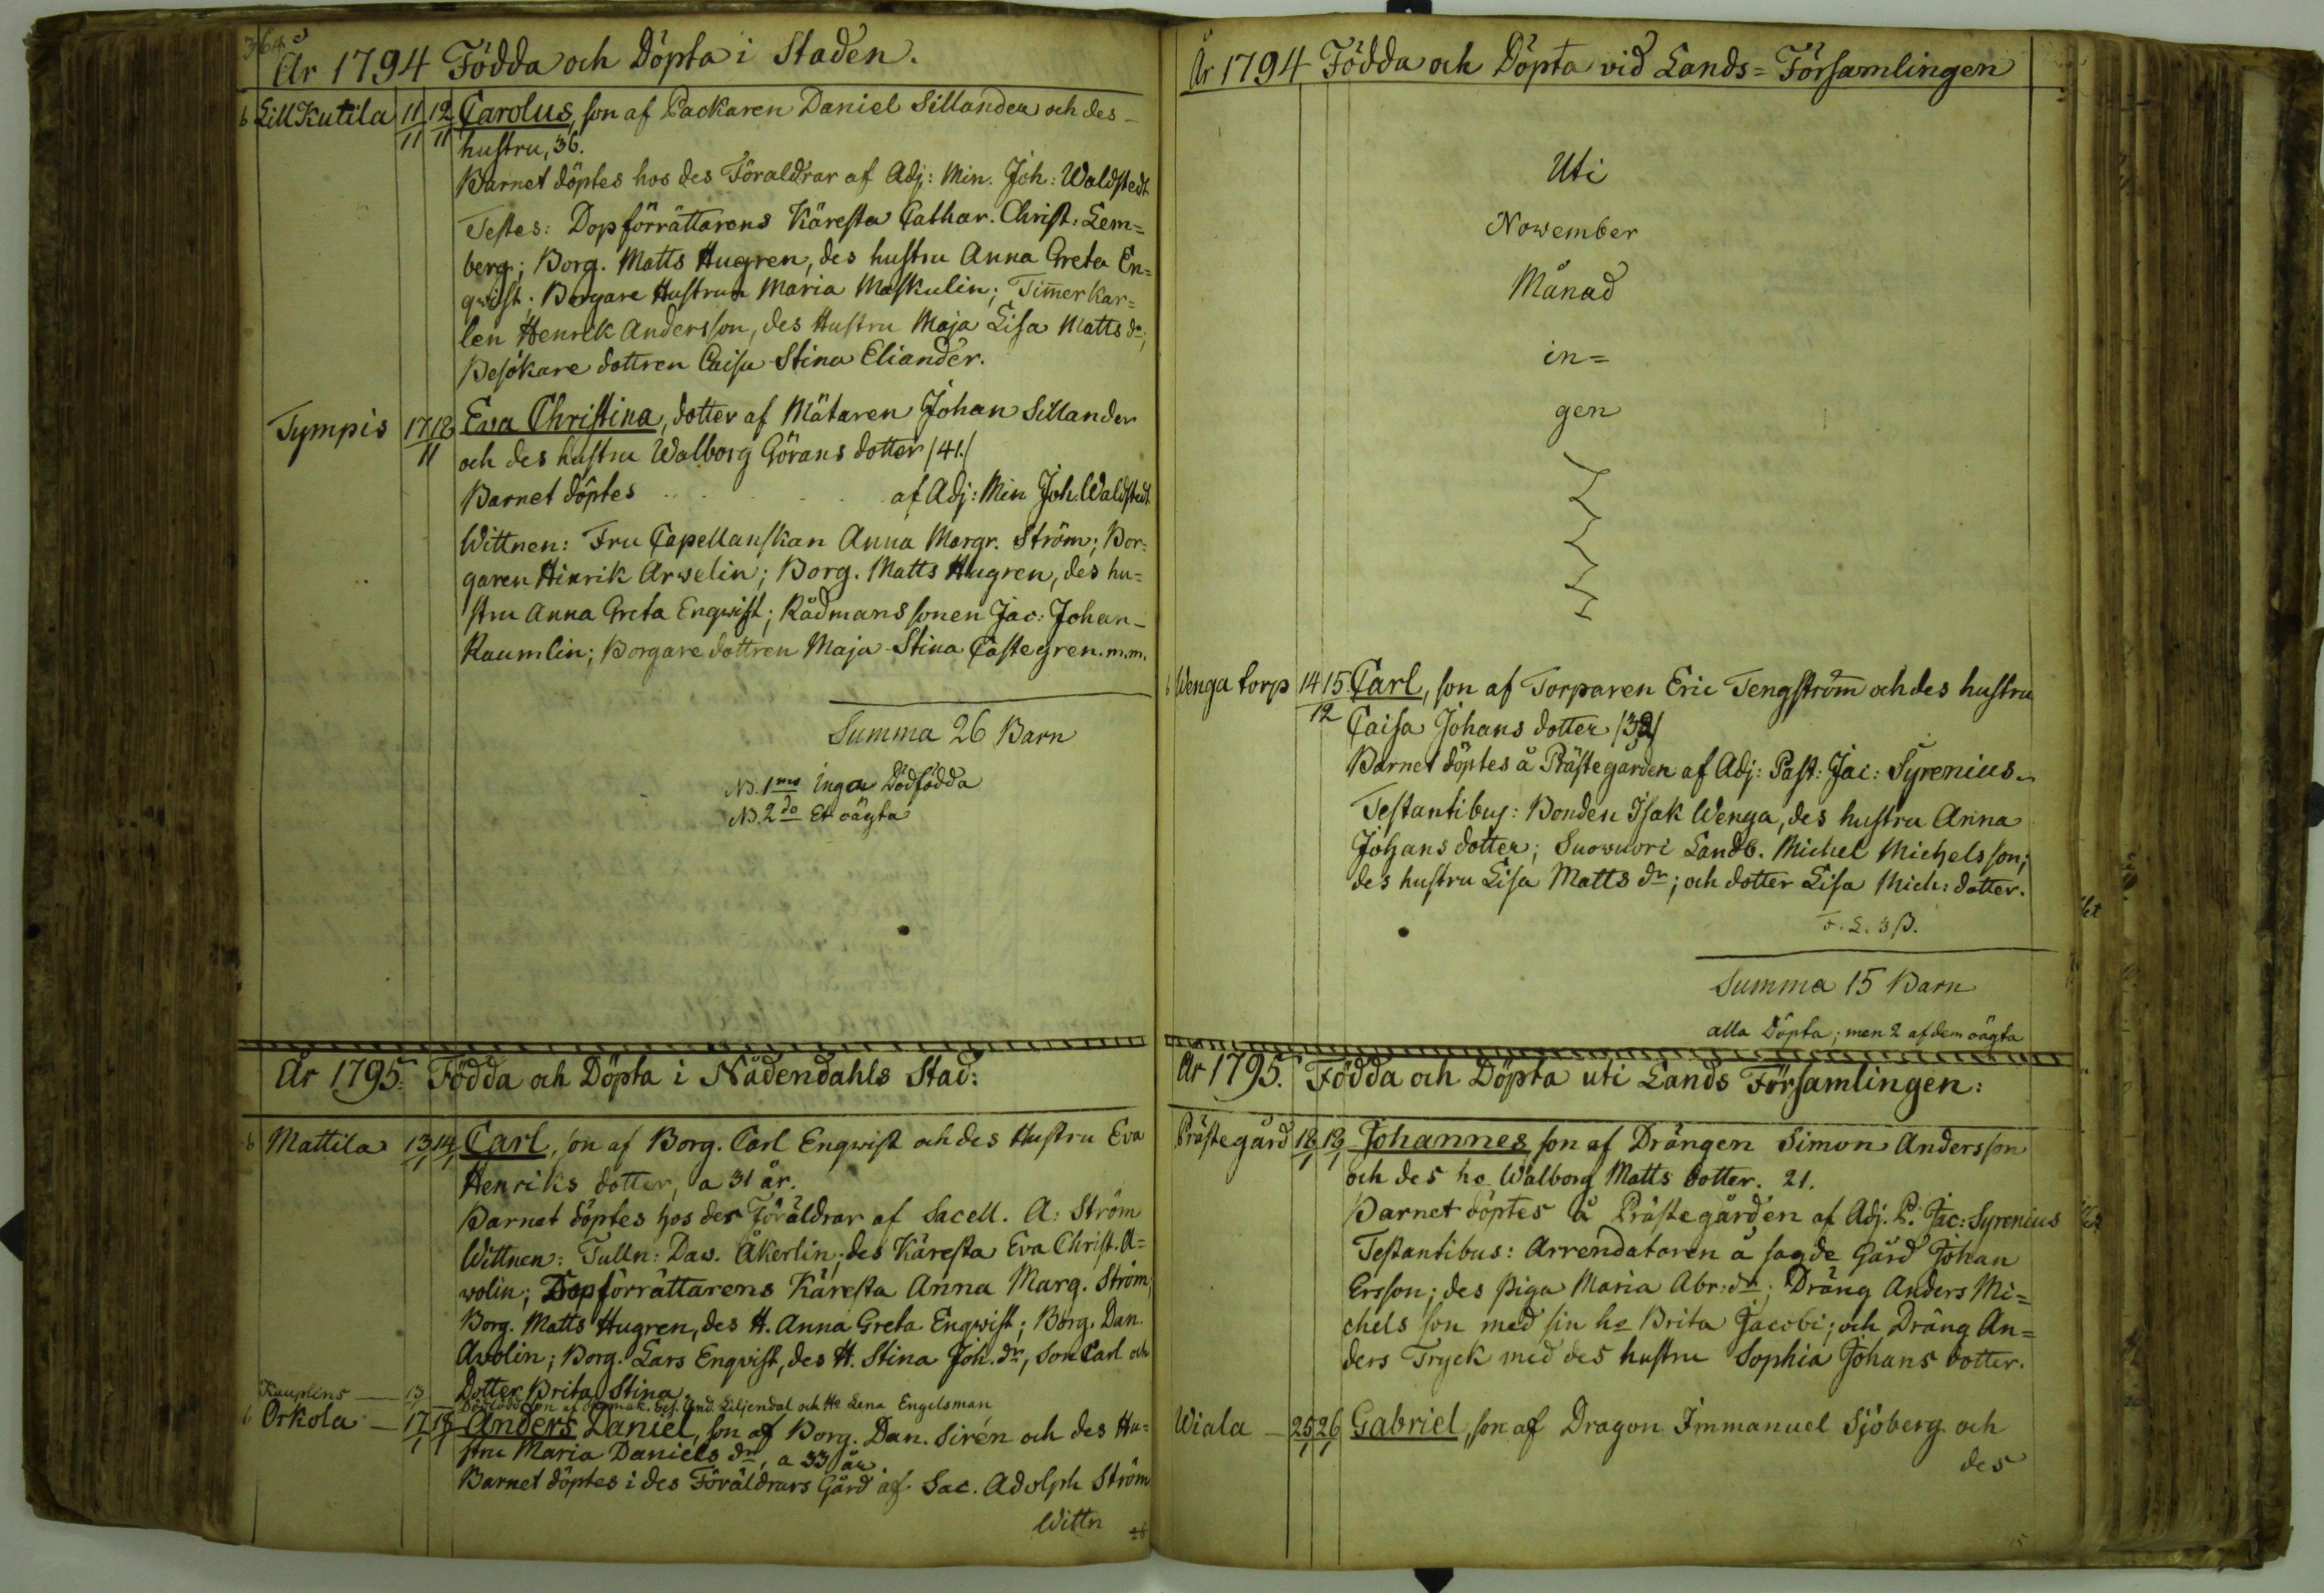 364
År 1794 Födda och Döpta i Staden.
6 Lill Kutila 11/11 12/11 Carolus, son af Packaren Daniel Sillander och des
hustru, 36.
Barnet döptes hos des Föraldrar af Adj: Min. Joh: Waldstedt
Testes: Dopförrättarens Käresta Cathar. Christ: Lem=
berg; Borg. Matts Hugren, des hustru Anna Greta En=
qwist; Borgare Hustrun Maria Maskulin; Timerkar=
len Henrik Andersson, des Hustru Maja Lisa Matts dr;
Besökare dottren Caisa Stina Eliander.
Tympis 17 18/11 Eva Christina, dotter af Mätaren Johan Sillander
och des hustru Walborg Görans dotter /41./
Barnet döptes . . . . . af Adj: Min Joh. Waldstedt
Wittnen: Fru Capellanskan Anna Margr. Ström; Bor=
garen Hinrik Arwelin; Borg. Matts Hugren, des hu=
stru Anna Greta Engwist; Rådmans sonen Jac: Johan
Raumlin; Borgare dottren Maja Stina Castegren. m.m.
Summa 26 Barn
NB. 1mo Inga Dödfödda
NB. 2do Et oägta
År 1795. Födda och Döpta i Nådendahls Stad:
6 Mattila 13/1 14/1 Carl, son af Borg. Carl Engwist och des Hustru Eva
Henriks dotter, a 31 år.
Barnet döptes hos des Föräldrar af Sacell. A: Ström
Wittnen: Tulln: Daw. Åkerlin, des Käresta Eva Christ. A=
wolin; Dopförrättarens Käresta Anna Marg. Ström;
Borg. Matts Hugren, des H. Anna Greta Engwist; Borg. Dan.
Avolin; Borg. Lars Enqvist, des H. Stina Joh. dr, Son Carl och
Dotter Brita Stina.
13 Dödfödd son af And. Liljendal och He Lena Engelsman
6 Orkola 17/1 18/1 Anders Daniel, son af Borg. Dan. Sirén och des Hu=
stru Maria Daniels dr, a 33 år.
Barnet döptes i des Föräldrars Gård af Sac. Adolph Ström
Wittn
År 1794 Födda och Döpta vid Lands=Församlingen
Uti
November
Månad
in=
gen
6 Wenga torp 14 15/12 Carl, son af Torparen Eric Tengström och des hustru
Caisa Johans dotter /32/
Barnet döptes å Prästegården af Adj: Past: Jac: Syrenius
Testantibus: Bonden Isak Wenga, des hustru Anna
Johans dotter; Suowuori Landb. Michel Michels son;
des hustru Lisa Matts dr; och dotter Lisa Mich: dotter.
Summa 15 Barn
alla Döpta; men 2 af dem oägta
År 1795. Födda och Döpta uti Lands Församlingen:
Prästegård 18/1 19/1 Johannes son af Drängen Simon Andersson
och des ho Walborg Matts dotter. 21.
Barnet döptes å Prästegården af Adj. P. Jac: Syrenius
Testantibus: Arrendatoren å sagde Gård Johan
Ersson; des piga Maria Abr: dr; Dräng Anders Mi=
chels son med sin ho Brita Jacobi; och Dräng An=
ders Tryck med des hustru Sophia Johans dotter.
Wiala 25/1 26/1 Gabriel, son af Dragon Immanuel Sjöberg och
des